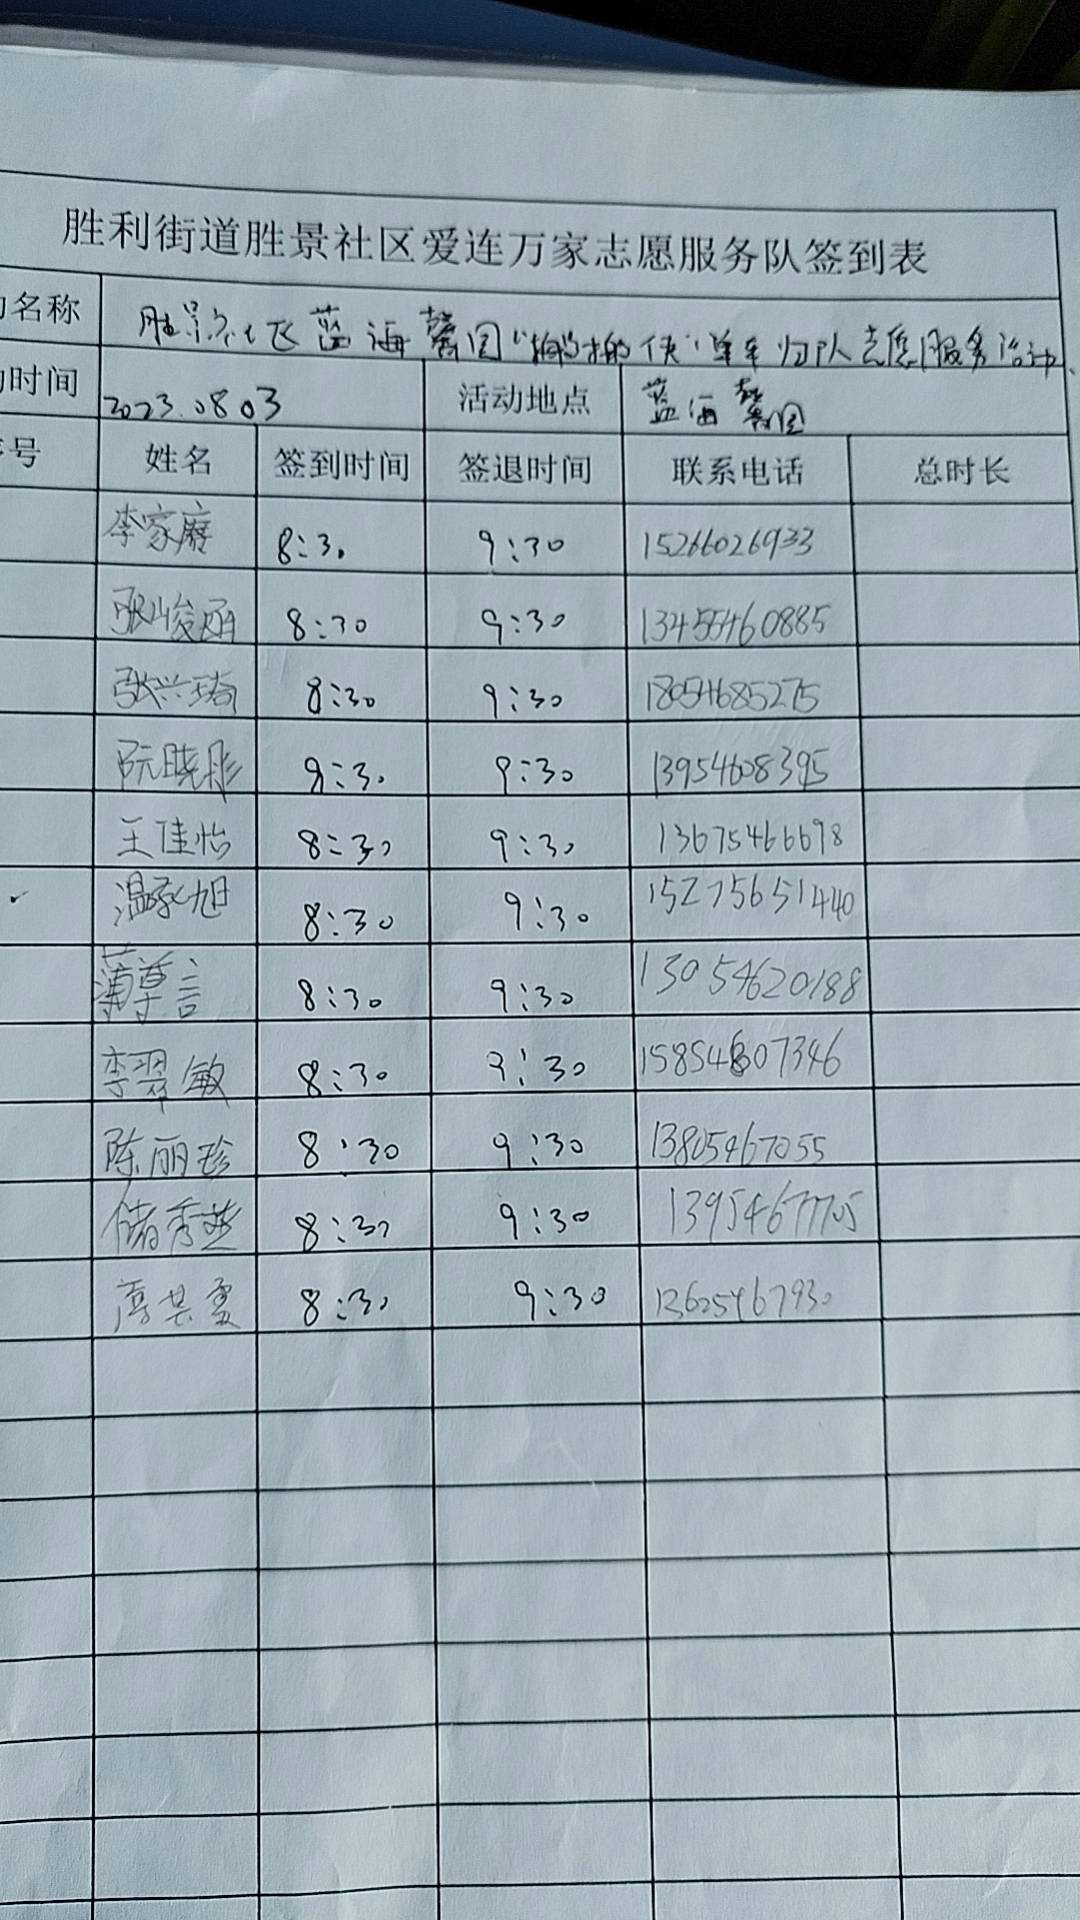 胜利街道胜景社区爱连万家志愿服务队签到表
名称 胜景社区蓝海馨园"单车归队志愿服务活动
时间 2023.0803 活动地点 蓝海馨园
号 姓名 签到时间 签退时间 联系电话 总时长
李家 8:30 9:30 15266026933
张峻 8:30 9:30 13455460885
张兴琦 8:30 9:30 18054685275
阮晓彤 9:30 9:30 13954608395
王佳怡 8:30 9:30 13675466698
温承旭 8:30 9:30 15275651440
薄尊言 8:30 9:30 13054620188
李翠敏 8:30 9:30 15854607346
陈丽珍 8:30 9:30 13805467055
储秀燕 8:30 9:30 13954677705
8:30 9:30 13625467930